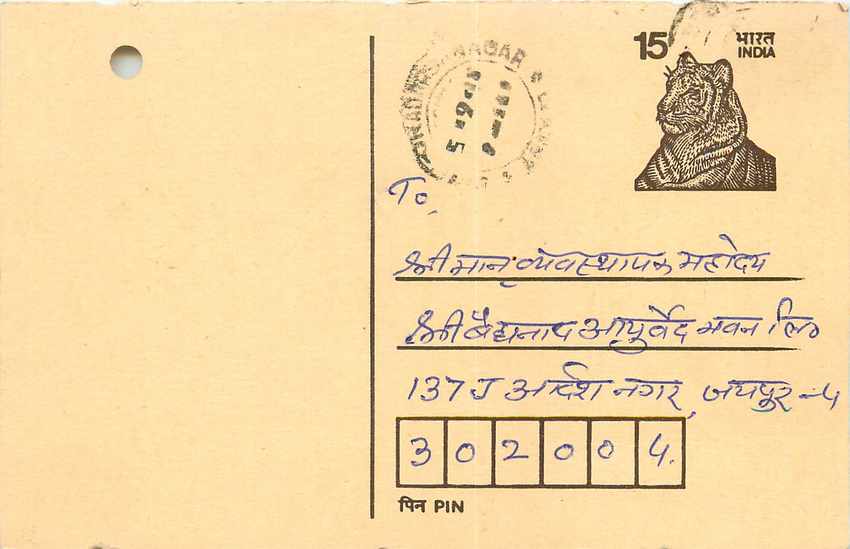 15 भारत
INDIA
NAGAR
To,
श्रीमान व्यवस्थापक महोदय
श्री बैद्यनाथ आयुर्वेद भवन लि॰
137 J आर्दश नगर, जयपुर-4
302004.
पिन PIN